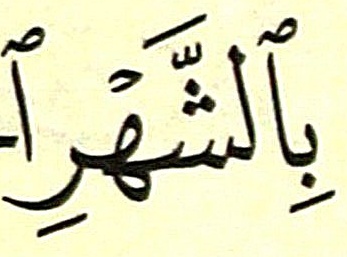 بِٱلشَّهْرِ ٱ